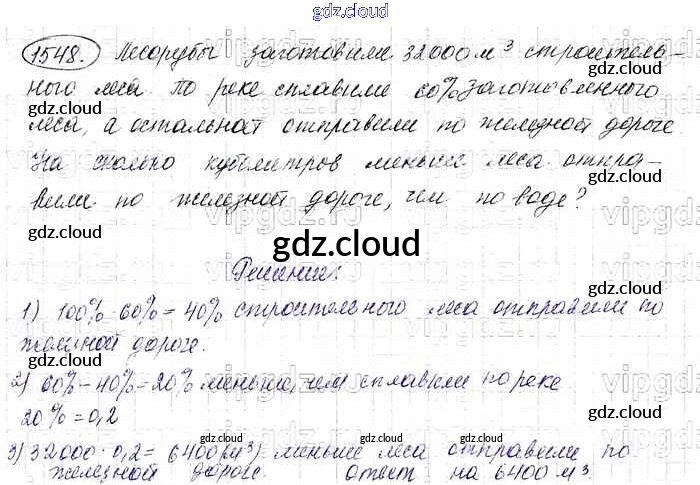 gdz.cloud
1548. Лесорубы заготовили 32000 м³ строитель-
ного леса. По реке сплавили 60% заготовленного
леса, а остальной отправили по железной дороге.
На сколько кубометров меньше леса отпра-
вили по железной дороге, чем по воде?
gdz.cloud
Решение:
1) 100% - 60% = 40% строительного леса отправили по
железной дороге.
2) 60% - 40% = 20% меньше, чем сплавили по реке
20% = 0,2
3) 32000 · 0,2 = 6400 (м³) меньше леса отправили по
железной дороге. ответ на 6400 м³.